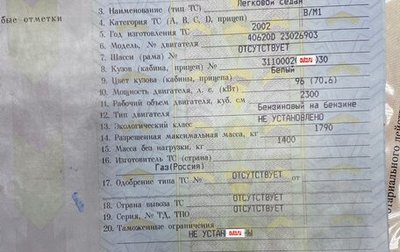 Легковой седан
3. Наименование (тип ТС)
4. Категория ТС (А, В, С, D, прицеп) В/М1
5. Год изготовления ТС 2002
6. Модель, № двигателя 40620D 23026903
7. Шасси (рама) № ОТСУТСТВУЕТ
8. Кузов (кабина, прицеп) № 3110002 030
9. Цвет кузова (кабины, прицепа) Белый
10. Мощность двигателя, л. с. (кВт) 96 (70.6)
11. Рабочий объем двигателя, куб. см 2300
12. Тип двигателя Бензиновый на бензине
13. Экологический класс НЕ УСТАНОВЛЕНО
14. Разрешенная максимальная масса, кг 1790
15. Масса без нагрузки, кг 1400
16. Изготовитель ТС (страна)
Газ(Россия)
17. Одобрение типа ТС № ОТСУТСТВУЕТ от
ОТСУТСТВУЕТ
18. Страна вывоза ТС ОТСУТСТВУЕТ
19. Серия, № ТД, ТПО ОТСУТСТВУЕТ
20. Таможенные ограничения
НЕ УСТАН Ы
бые отметки